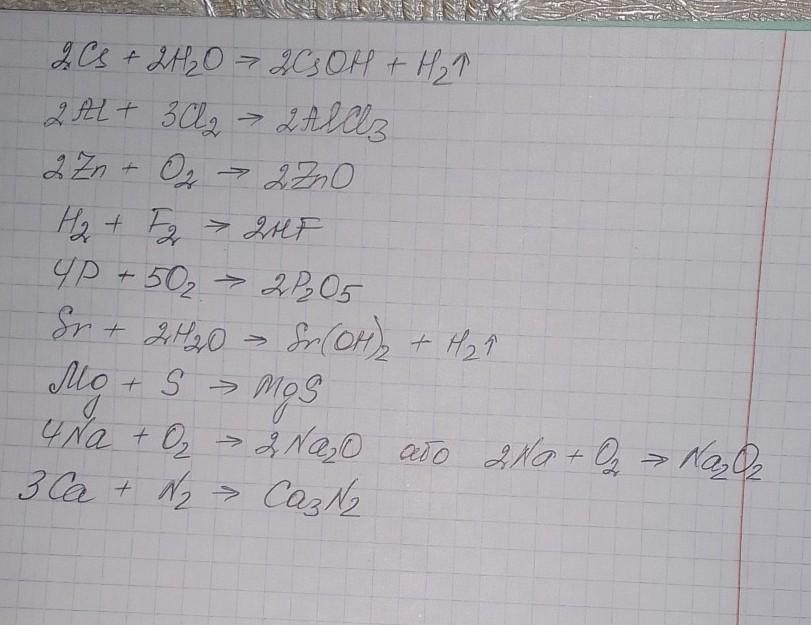 2Cs + 2H₂O → 2CsOH + H₂↑
2Al + 3Cl₂ → 2AlCl₃
2Zn + O₂ → 2ZnO
H₂ + F₂ → 2HF
4P + 5O₂ → 2P₂O₅
Sr + 2H₂O → Sr(OH)₂ + H₂↑
Mg + S → MgS
4Na + O₂ → 2Na₂O або 2Na + O₂ → Na₂O₂
3Ca + N₂ → Ca₃N₂